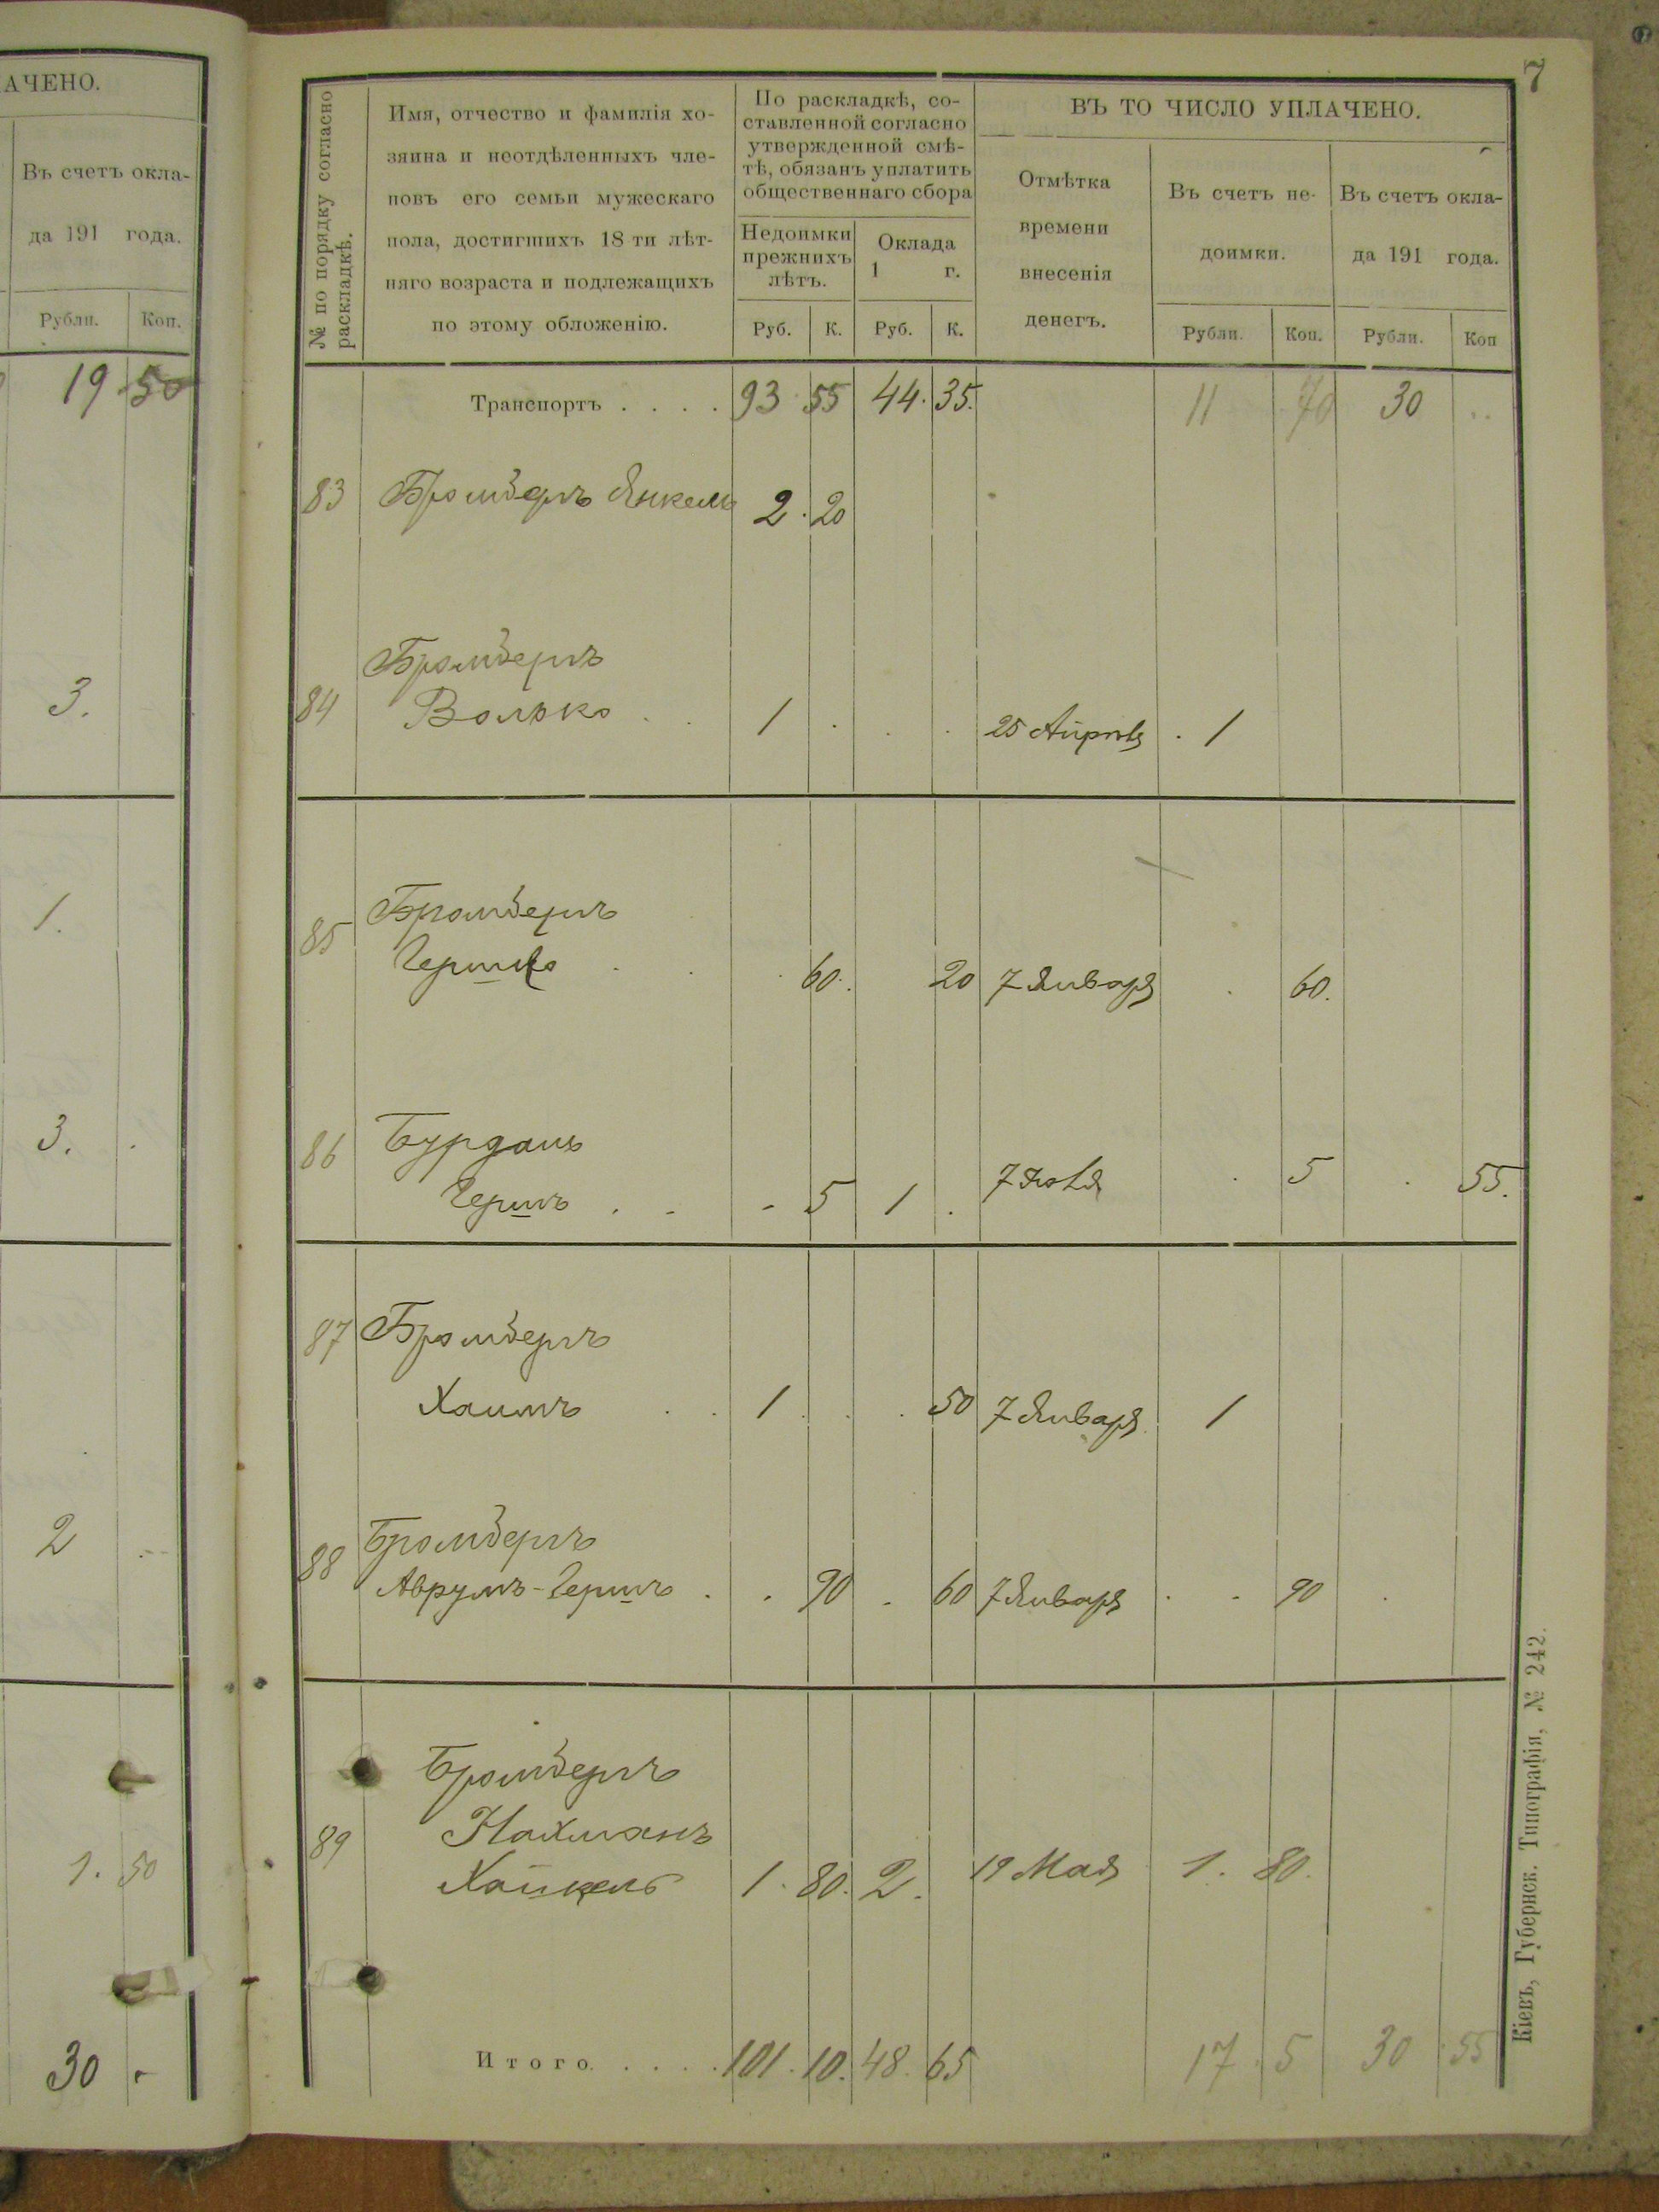 АЧЕНО.
Въ счетъ окла-
да 191 года.
Рубли. Коп.
19 50
3.
1.
3.
2
1. 50
30 -
7
№ по порядку согласно
раскладкѣ.
Имя, отчество и фамилія хо-
зяина и неотдѣленныхъ чле-
новъ его семьи мужескаго
пола, достигшихъ 18 ти лѣт-
няго возраста и подлежащихъ
по этому обложенію.
По раскладкѣ, со-
ставленной согласно
утвержденной смѣ-
тѣ, обязанъ уплатить
общественнаго сбора
Недоимки
прежнихъ
лѣтъ.
Оклада
1 г.
Руб. К. Руб. К.
ВЪ ТО ЧИСЛО УПЛАЧЕНО.
Отмѣтка
времени
внесенія
денегъ.
Въ счетъ не-
доимки.
Рубли. Коп.
Въ счетъ окла-
да 191 года.
Рубли. Коп
Транспортъ . . . . 93 55 44. 35. 11 70 30 ..
83 Бромбергъ Янкель 2. 20
Бромбергъ
84 Волько . . 1 . . . 25 Апрѣля . 1
Бромбергъ
85 Гершко . . . 60. 20 7 Января . 60.
86 Бурданъ
Гершъ . - - 5 1 . 7 Июля . 5 . 55.
87 Бромбергъ
Хаимъ . . 1 . . . 50 7 Января 1
Бромбергъ
88 Аврумъ-Гершъ . . 90 . 60 7 Января . . 90 .
Бромбергъ
89 Нахманъ
Хайкель 1. 80. 2. 19 Мая 1. 80.
Итого. . . . . 101. 10. 48. 65 17. 5 30 55
Кіевъ, Губернск. Типографія, № 242.